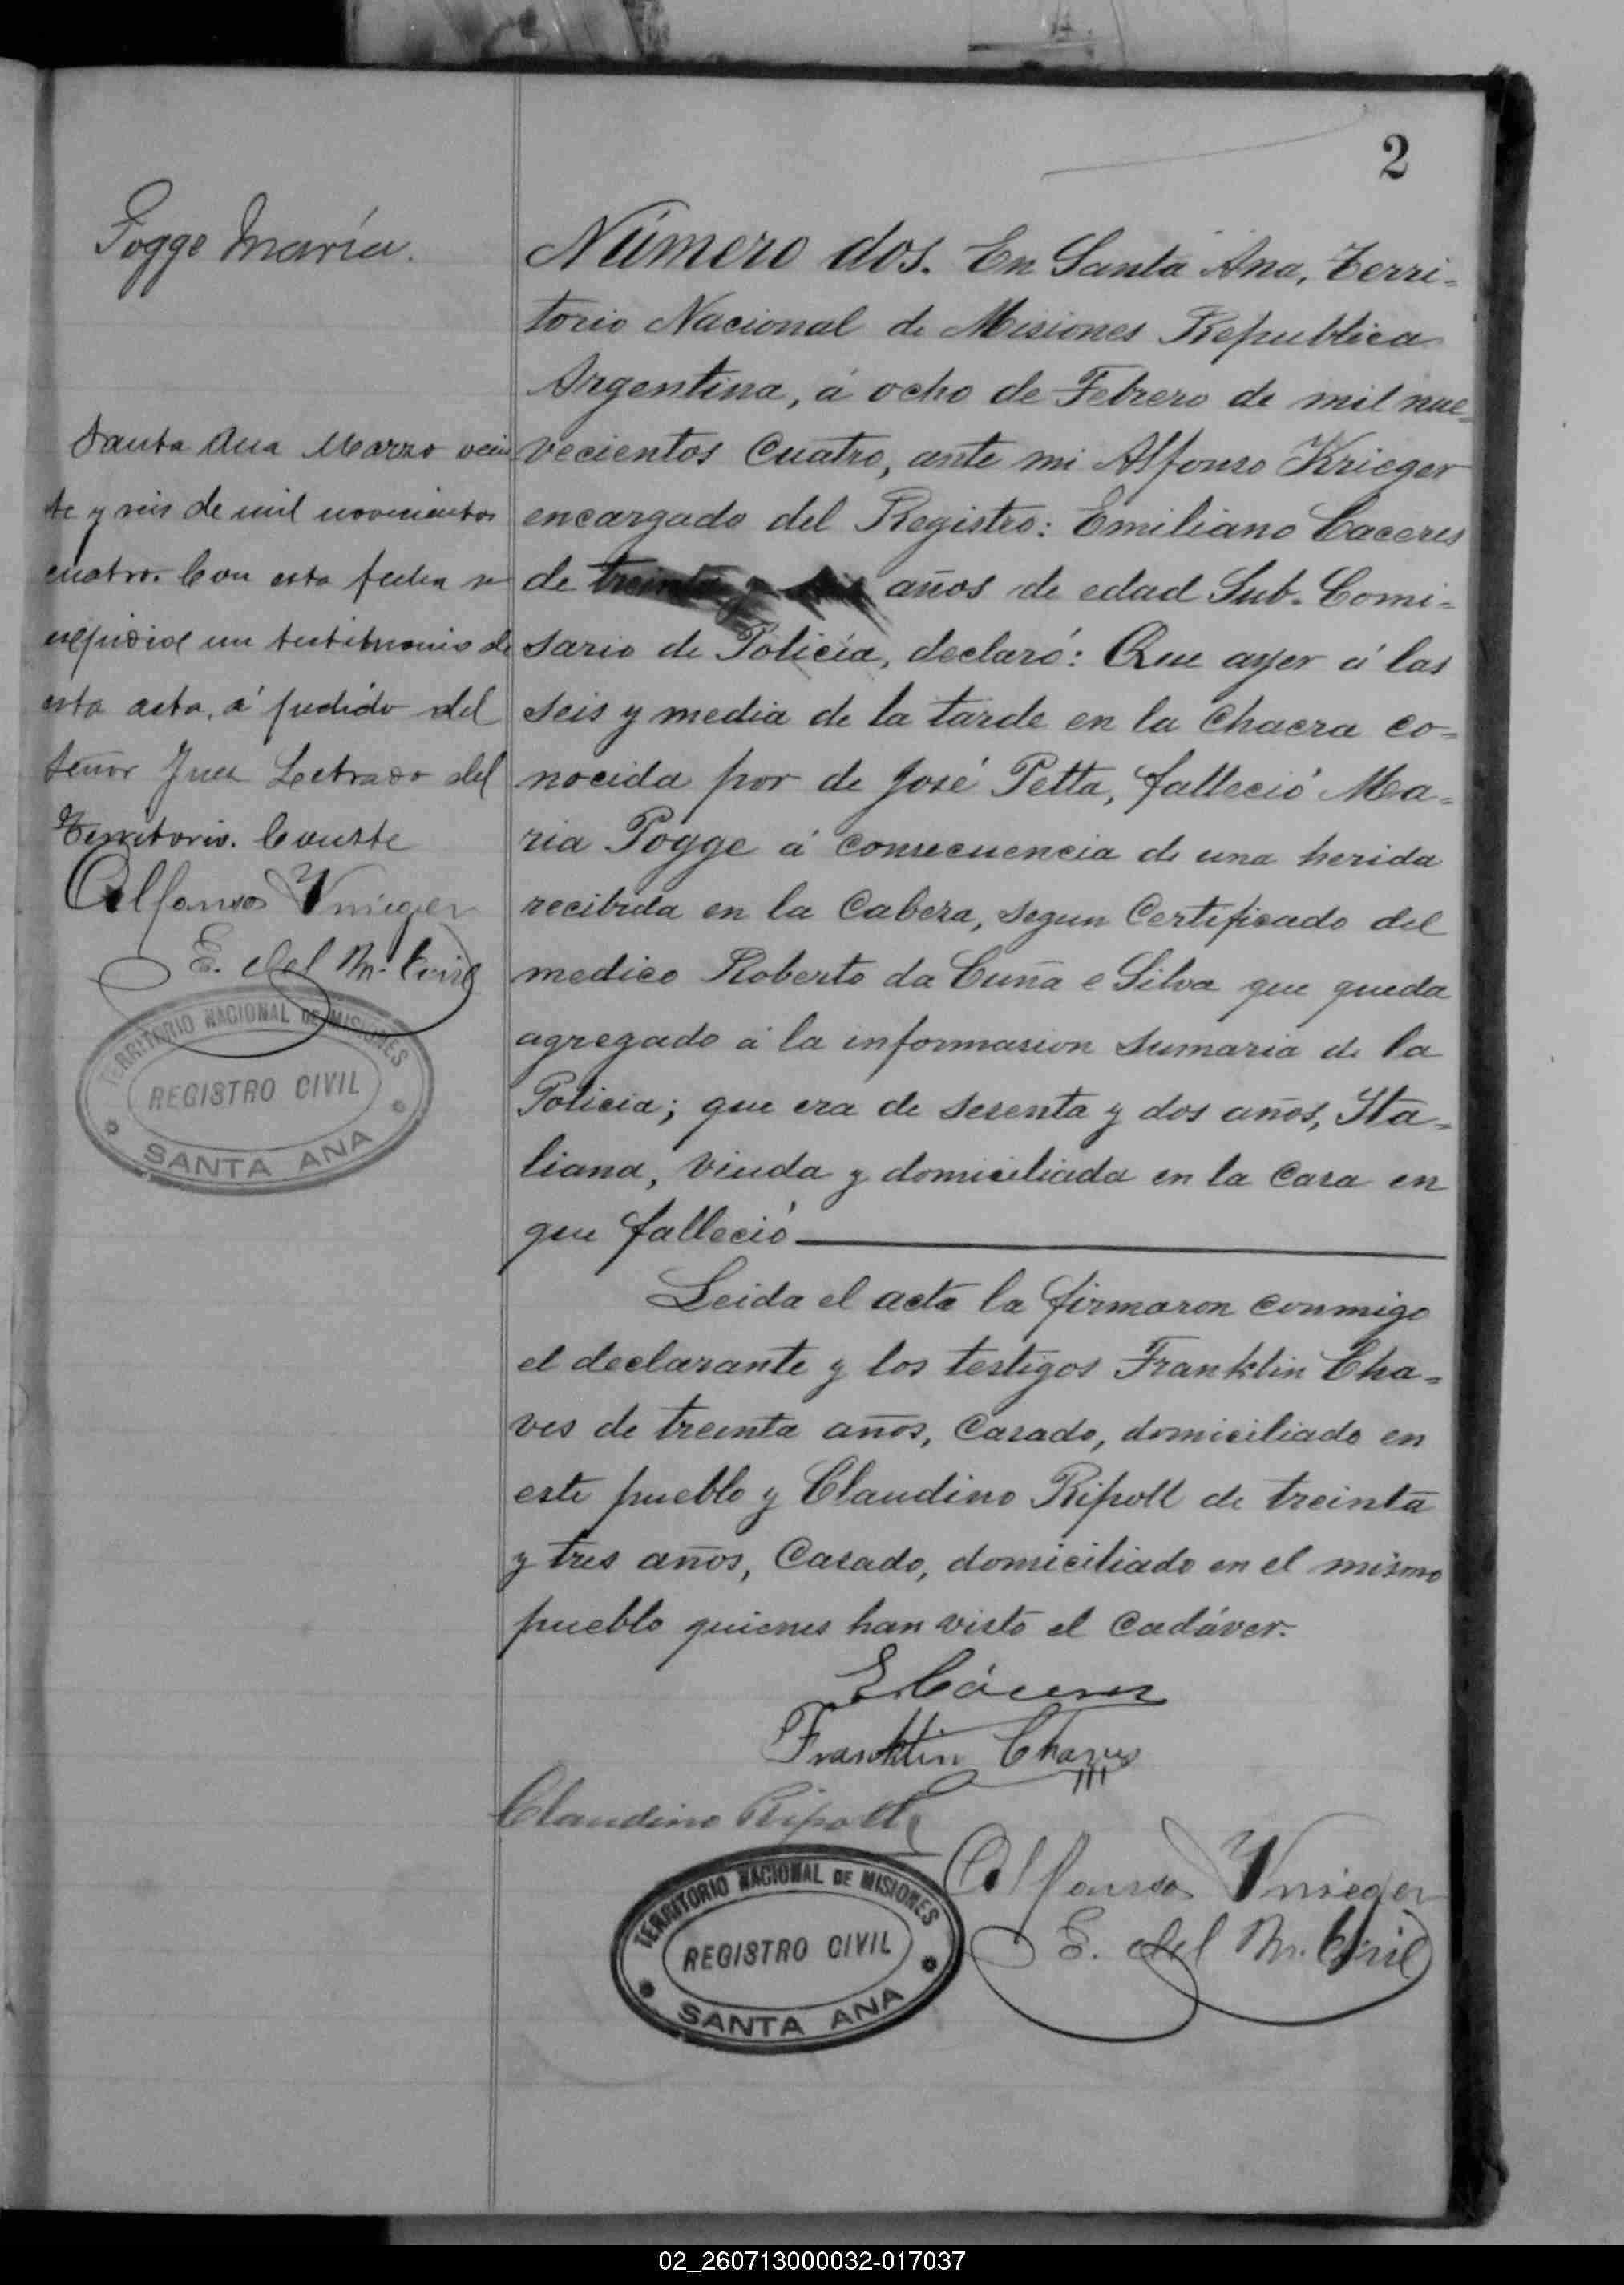 2
Pogge María.
Santa Ana Marzo vein
te y seis de mil novecientos
cuatro. Con esta fecha se
espidióse un testimonio de
esta acta, á pedido del
Señor Juez Letrado del
Territorio. Conste
Alfonso Krieger
E. del R. Civil
TERRITORIO NACIONAL DE MISIONES
REGISTRO CIVIL
SANTA ANA
Número dos. En Santa Ana, Terri=
torio Nacional de Misiones Republica
Argentina, á ocho de Febrero de mil nue=
vecientos Cuatro, ante mi Alfonso Krieger
encargado del Registro: Emiliano Caceres
de treinta y años de edad Sub-Comi=
sario de Policía, declaró: Que ayer á las
seis y media de la tarde en la Chacra co=
nocida por de José Petta, falleció Ma=
ria Pogge á consecuencia de una herida
recibida en la Cabeza, segun Certificado del
medico Roberto da Cuña e Silva que queda
agregado á la informasion sumaria de la
Policia; que era de sesenta y dos años, Ita=
liana, Viuda y domiciliada en la Casa en
que falleció
Leida el acta la firmaron conmigo
el declarante y los testigos Franklin Cha=
ves de treinta años, Casado, domiciliado en
este pueblo y Claudino Ripoll de treinta
y tres años, Casado, domiciliado en el mismo
pueblo quienes han visto el Cadáver.
E Cáceres
Franklin Chaves
Claudino Ripoll
Alfonso Krieger
E. del R. Civil
TERRITORIO NACIONAL DE MISIONES
REGISTRO CIVIL
SANTA ANA
02_260713000032-017037